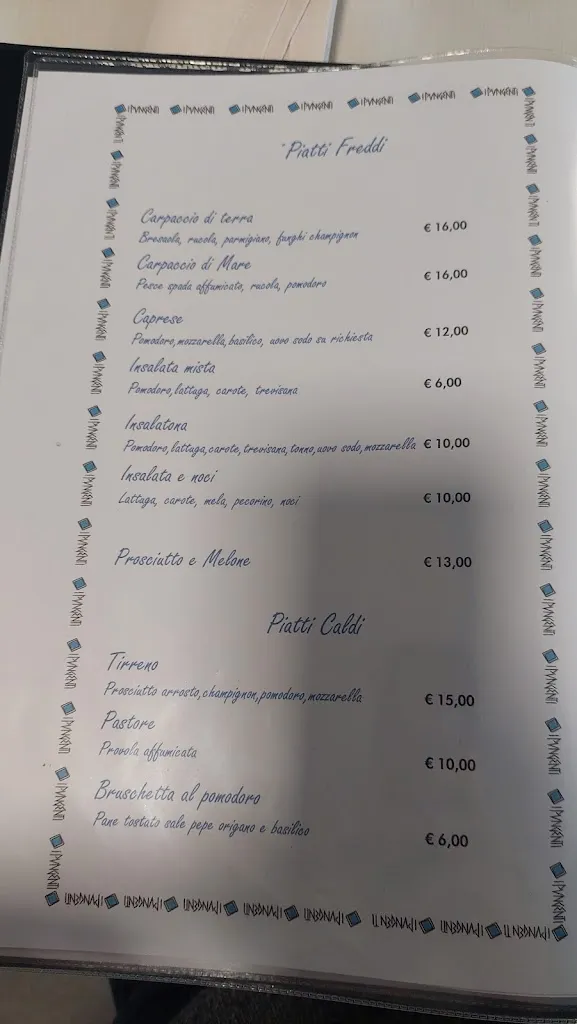 I PUNGENTI I PUNGENTI I PUNGENTI I PUNGENTI I PUNGENTI I PUNGENTI I PUNGENTI
Piatti Freddi
Carpaccio di terra
Bresaola, rucola, parmigiano, funghi champignon
€ 16,00
Carpaccio di Mare
Pesce spada affumicato, rucola, pomodoro
€ 16,00
Caprese
Pomodoro,mozzarella,basilico, uovo sodo su richiesta
€ 12,00
Insalata mista
Pomodoro,lattuga, carote, trevisana
€ 6,00
Insalatona
Pomodoro,lattuga,carote,trevisana,tonno,uovo sodo,mozzarella
€ 10,00
Insalata e noci
Lattuga, carote, mela, pecorino, noci
€ 10,00
Prosciutto e Melone
€ 13,00
Piatti Caldi
Tirreno
Prosciutto arrosto,champignon,pomodoro,mozzarella
€ 15,00
Pastore
Provola affumicata
€ 10,00
Bruschetta al pomodoro
Pane tostato sale pepe origano e basilico
€ 6,00